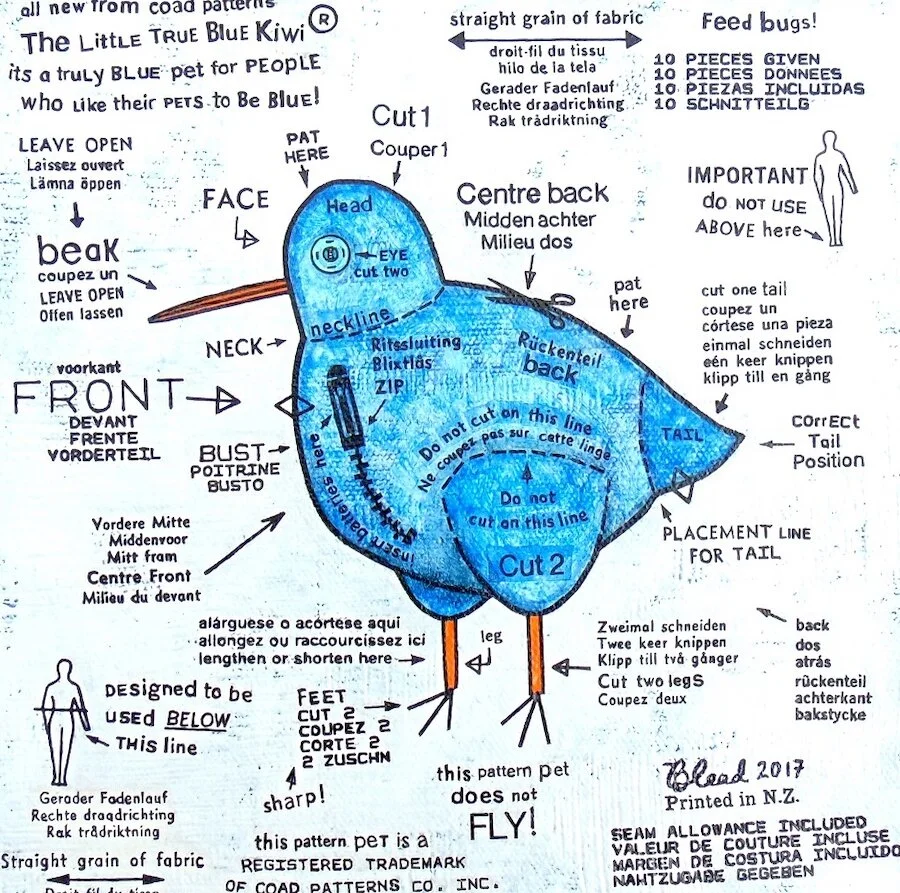 all new from coad patterns
The Little True Blue Kiwi ®
its a truly BLUE pet for PEOPLE
who like their PETS to Be Blue!
straight grain of fabric
droit-fil du tissu
hilo de la tela
Gerader Fadenlauf
Rechte draadrichting
Rak trådriktning
Feed bugs!
10 PIECES GIVEN
10 PIECES DONNEES
10 PIEZAS INCLUIDAS
10 SCHNITTEILG
LEAVE OPEN
Laissez ouvert
Lämna öppen
PAT
HERE
Cut 1
Couper 1
FACE
Head
EYE
cut two
Centre back
Midden achter
Milieu dos
IMPORTANT
do NOT USE
ABOVE here
beak
coupez un
LEAVE OPEN
Offen lassen
pat
here
cut one tail
coupez un
córtese una pieza
einmal schneiden
eén keer knippen
klipp till en gång
neckline
NECK
Ritssluiting
Blixtlås
ZIP
Rückenteil
back
voorkant
FRONT
DEVANT
FRENTE
VORDERTEIL
Do not cut on this line
Ne coupez pas sur cette linge
TAIL
CorrECt
Tail
Position
BUST
POITRINE
BUSTO
insert batteries here
Do not
cut on this line
Cut 2
Vordere Mitte
Middenvoor
Mitt fram
Centre Front
Milieu du devant
PLACEMENT LINE
FOR TAIL
alárguese o acórtese aqui
allongez ou raccourcissez ici
lengthen or shorten here
leg
Zweimal schneiden
Twee keer knippen
Klipp till två gånger
Cut two legs
Coupez deux
back
dos
atrás
rückenteil
achterkant
bakstycke
Designed to be
USEd BELOW
THis line
FEET
CUT 2
COUPEZ 2
CORTE 2
2 ZUSCHN
sharp!
this pattern pet
does not
FLY!
Blead 2017
Printed in N.Z.
Gerader Fadenlauf
Rechte draadrichting
Rak trådriktning
Straight grain of fabric
Droit-fil du tissu
this pattern pET is a
REGISTERED TRADEMARK
OF COAD PATTERNS CO. INC.
SEAM ALLOWANCE INCLUDED
VALEUR DE COUTURE INCLUSE
MARGEN DE COSTURA INCLUIDO
NAHTZUGABE GEGEBEN